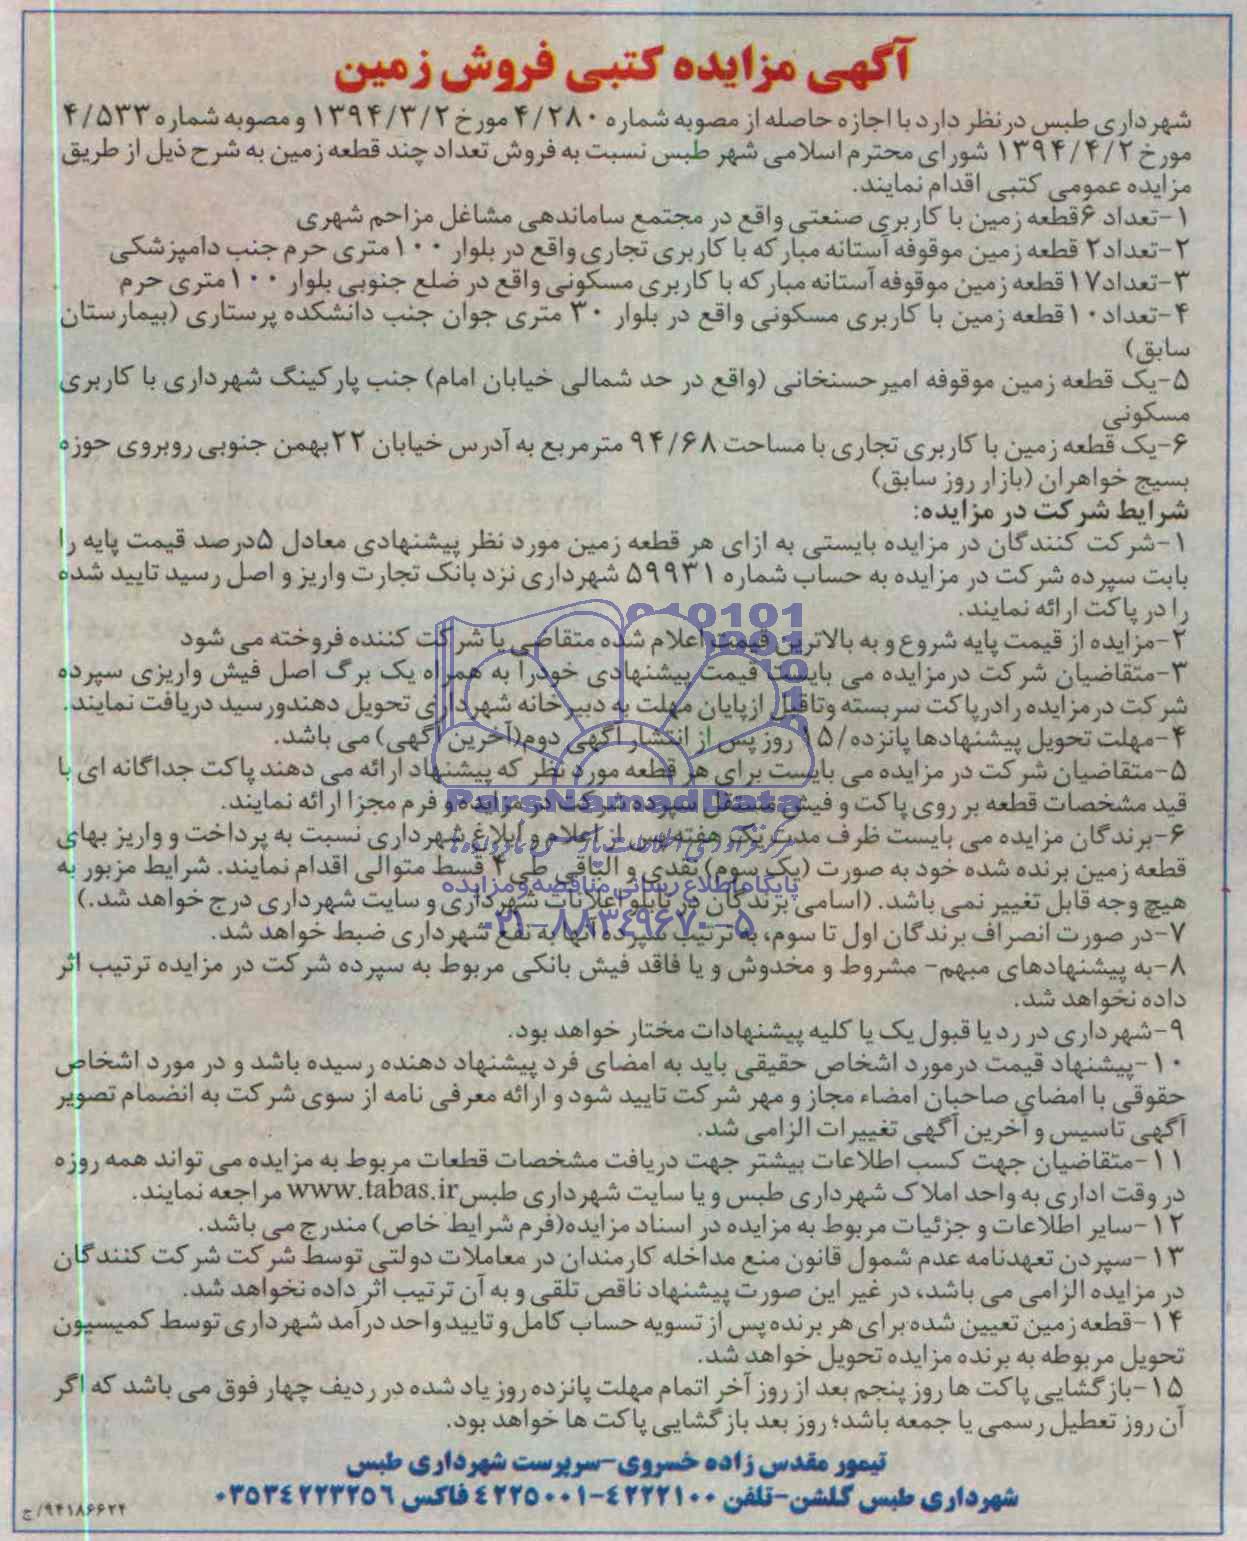 آگهی مزایده کتبی فروش زمین
شهرداری طبس درنظر دارد با اجازه حاصله از مصوبه شماره ۴/۲۸۰ مورخ ۱۳۹۴/۳/۲ و مصوبه شماره ۴/۵۳۳
مورخ ۱۳۹۴/۴/۲ شورای محترم اسلامی شهر طبس نسبت به فروش تعداد چند قطعه زمین به شرح ذیل از طریق
مزایده عمومی کتبی اقدام نمایند.
۱-تعداد ۶قطعه زمین با کاربری صنعتی واقع در مجتمع ساماندهی مشاغل مزاحم شهری
۲-تعداد۲ قطعه زمین موقوفه آستانه مبارکه با کاربری تجاری واقع در بلوار ۱۰۰متری حرم جنب دامپزشکی
۳-تعداد۱۷قطعه زمین موقوفه آستانه مبارکه با کاربری مسکونی واقع در ضلع جنوبی بلوار ۱۰۰متری حرم
۴-تعداد۱۰قطعه زمین با کاربری مسکونی واقع در بلوار ۳۰ متری جوان جنب دانشکده پرستاری (بیمارستان
سابق)
۵-یک قطعه زمین موقوفه امیرحسنخانی (واقع در حد شمالی خیابان امام) جنب پارکینگ شهرداری با کاربری
مسکونی
۶-یک قطعه زمین با کاربری تجاری با مساحت ۹۴/۶۸ مترمربع به آدرس خیابان ۲۲بهمن جنوبی روبروی حوزه
بسیج خواهران (بازار روز سابق)
شرایط شرکت در مزایده:
۱-شرکت کنندگان در مزایده بایستی به ازای هر قطعه زمین مورد نظر پیشنهادی معادل ۵درصد قیمت پایه را
بابت سپرده شرکت در مزایده به حساب شماره ۵۹۹۳۱ شهرداری نزد بانک تجارت واریز و اصل رسید تایید شده
را در پاکت ارائه نمایند.
۲-مزایده از قیمت پایه شروع و به بالاترین قیمت اعلام شده متقاضی یا شرکت کننده فروخته می شود
۳-متقاضیان شرکت درمزایده می بایست قیمت پیشنهادی خودرا به همراه یک برگ اصل فیش واریزی سپرده
شرکت درمزایده رادرپاکت سربسته وتاقبل ازپایان مهلت به دبیرخانه شهرداری تحویل دهندورسید دریافت نمایند.
۴-مهلت تحویل پیشنهادها پانزده/۱۵ روز پس از انتشار آگهی دوم(آخرین آگهی) می باشد.
۵-متقاضیان شرکت در مزایده می بایست برای هر قطعه مورد نظر که پیشنهاد ارائه می دهند پاکت جداگانه ای با
قید مشخصات قطعه بر روی پاکت و فیش مستقل سپرده شرکت در مزایده و فرم مجزا ارائه نمایند.
۶-برندگان مزایده می بایست ظرف مدت یک هفته پس از اعلام و ابلاغ شهرداری نسبت به پرداخت و واریز بهای
قطعه زمین برنده شده خود به صورت (یک سوم) نقدی و الباقی طی ۴ قسط متوالی اقدام نمایند. شرایط مزبور به
هیچ وجه قابل تغییر نمی باشد. (اسامی برندگان در تابلو اعلانات شهرداری و سایت شهرداری درج خواهد شد.)
۷-در صورت انصراف برندگان اول تا سوم، به ترتیب سپرده آنها به نفع شهرداری ضبط خواهد شد.
۸-به پیشنهادهای مبهم- مشروط و مخدوش و یا فاقد فیش بانکی مربوط به سپرده شرکت در مزایده ترتیب اثر
داده نخواهد شد.
۹-شهرداری در رد یا قبول یک یا کلیه پیشنهادات مختار خواهد بود.
۱۰-پیشنهاد قیمت درمورد اشخاص حقیقی باید به امضای فرد پیشنهاد دهنده رسیده باشد و در مورد اشخاص
حقوقی با امضای صاحبان امضاء مجاز و مهر شرکت تایید شود و ارائه معرفی نامه از سوی شرکت به انضمام تصویر
آگهی تاسیس و آخرین آگهی تغییرات الزامی شد.
۱۱-متقاضیان جهت کسب اطلاعات بیشتر جهت دریافت مشخصات قطعات مربوط به مزایده می تواند همه روزه
در وقت اداری به واحد املاک شهرداری طبس و یا سایت شهرداری طبسwww.tabas.ir مراجعه نمایند.
۱۲-سایر اطلاعات و جزئیات مربوط به مزایده در اسناد مزایده(فرم شرایط خاص) مندرج می باشد.
۱۳-سپردن تعهدنامه عدم شمول قانون منع مداخله کارمندان در معاملات دولتی توسط شرکت شرکت کنندگان
در مزایده الزامی می باشد، در غیر این صورت پیشنهاد ناقص تلقی و به آن ترتیب اثر داده نخواهد شد.
۱۴-قطعه زمین تعیین شده برای هر برنده پس از تسویه حساب کامل و تایید واحد درآمد شهرداری توسط کمیسیون
تحویل مربوطه به برنده مزایده تحویل خواهد شد.
۱۵-بازگشایی پاکت ها روز پنجم بعد از روز آخر اتمام مهلت پانزده روز یاد شده در ردیف چهار فوق می باشد که اگر
آن روز تعطیل رسمی یا جمعه باشد؛ روز بعد بازگشایی پاکت ها خواهد بود.
تیمور مقدس زاده خسروی-سرپرست شهرداری طبس
شهرداری طبس گلشن-تلفن ۴۲۲۲۱۰۰-۴۲۲۵۰۰۱ فاکس ۰۳۵۳۴۲۲۳۲۵۶
۹۴۱۸۶۶۲۴/ج
ParsNamadData
پایگاه اطلاع رسانی مناقصه و مزایده
۰۲۱-۸۸۳۴۹۶۷۰-۵